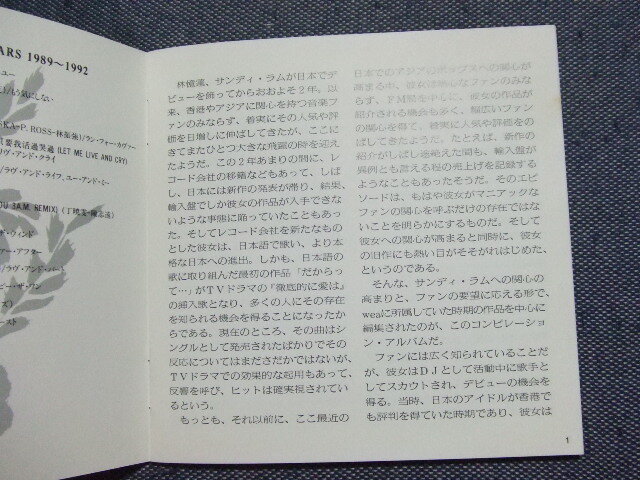 ARS 1989～1992
ユー
/もう気にしない
KA-P. ROSS-林振強)/ラン・フォー・カヴァー
要我活過哭過 (LET ME LIVE AND CRY)
ヴ・アンド・クライ
/ラヴ・アンド・ライフ、ユー・アンド・ミー
3A.M. REMIX]
ド・ウィンド
ー・アフター
/ラヴ・アンド・ハート
ビー・ザ・ワン
ズ)
ースト
林憶蓮、サンディ・ラムが日本でデ
ビューを飾ってからおおよそ2年。以
来、香港やアジアに関心を持つ音楽フ
ァンのみならず、着実にその人気や評
価を日増しに伸ばしてきたが、ここに
きてまたひとつ大きな飛躍の時を迎え
たようだ。この2年あまりの間に、レ
コード会社の移籍などもあって、しば
し、日本には新作の発表が滞り、結果、
輸入盤でしか彼女の作品が入手できな
いような事態に陥っていたこともあっ
た。そしてレコード会社を新たなもの
とした彼女は、日本語で歌い、より本
格な日本への進出。しかも、日本語の
歌に取り組んだ最初の作品「だからっ
て…」がTVドラマの「徹底的に愛は」
の挿入歌となり、多くの人にその存在
を知られる機会を得ることになったか
らである。現在のところ、その曲はシ
ングルとして発売されたばかりでその
反応についてはまださだかではないが、
TVドラマでの効果的な起用もあって、
反響を呼び、ヒットは確実視されてい
るという。
もっとも、それ以前に、ここ最近の
日本でのアジアのポップスへの関心が
高まる中、彼女は熱心なファンのみな
らず、FM局を中心に、彼女の作品が
紹介される機会も多く、幅広いファン
の関心を得て、着実に人気と評価をの
ばしてきたようだ。たとえば、新作の
紹介がしばし途絶えた間も、輸入盤が
異例とも言える程の売上げを記録する
ようなこともあったそうだ。そのエピ
ソードは、もはや彼女がマニアックな
ファンの関心を呼ぶだけの存在ではな
いことを明らかにするものだ。そして
彼女への関心が高まると同時に、彼女
の旧作にも熱い目がそそがれはじめた、
というのである。
そんな、サンディ・ラムへの関心の
高まりと、ファンの要望に応える形で、
weaに所属していた時期の作品を中心に
編集されたのが、このコンピレーショ
ン・アルバムだ。
ファンには広く知られていることだ
が、彼女はDJとして活動中に歌手と
してスカウトされ、デビューの機会を
得る。当時、日本のアイドルが香港で
も評判を得ていた時期であり、彼女は
1